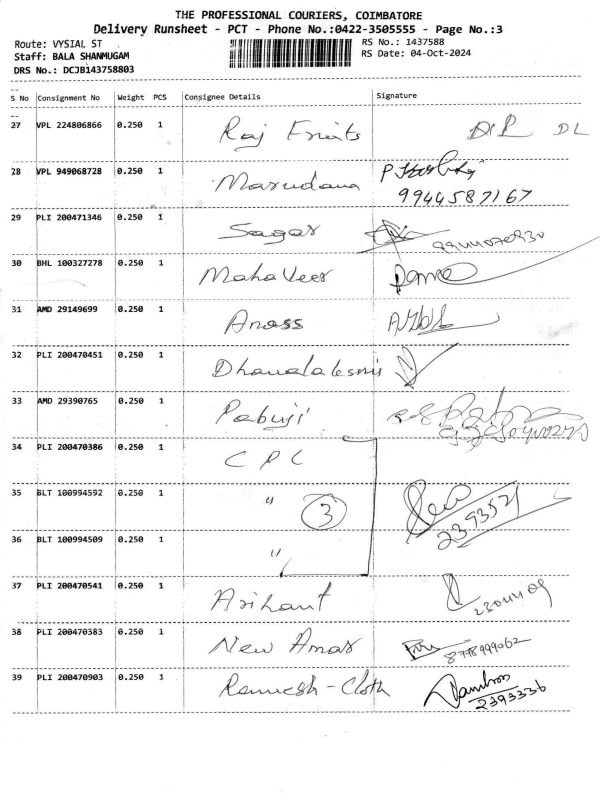 THE PROFESSIONAL COURIERS, COIMBATORE
Delivery Runsheet - PCT - Phone No.:0422-3505555 - Page No.:3
Route: VYSIAL ST
RS No.: 1437588
Staff: BALA SHANMUGAM
RS Date: 04-Oct-2024
DRS No.: DCJB143758803
S No Consignment No Weight PCS Consignee Details Signature
27 VPL 224806866 0.250 1 Raj Fruits DL
28 VPL 949068728 0.250 1 Marudana
9944587167
29 PLI 200471346 0.250 1 Sagar
30 BHL 100327278 0.250 1 Mahaveer
31 AMD 29149699 0.250 1 Anass
32 PLI 200470451 0.250 1
33 AMD 29390765 0.250 1 Pabuji
34 PLI 200470386 0.250 1 CPC
35 BLT 100994592 0.250 1 " 3
2393521
36 BLT 100994509 0.250 1 "
37 PLI 200470541 0.250 1 Arihant
38 PLI 200470383 0.250 1 New Amar
8778999062
39 PLI 200470903 0.250 1 Ramesh - Cloth
2393336